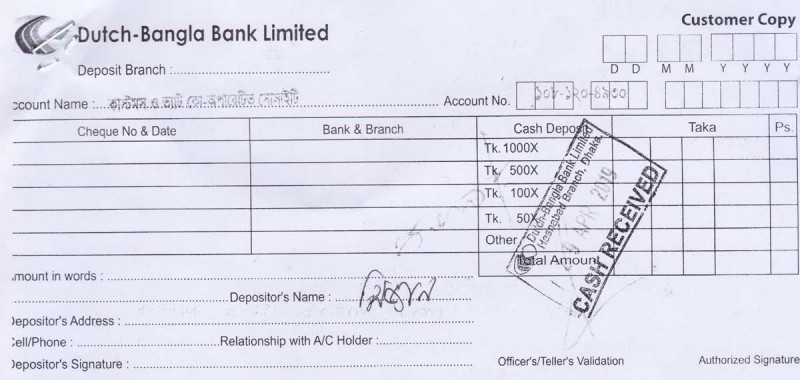 Customer Copy
Dutch-Bangla Bank Limited
D D M M Y Y Y Y
Deposit Branch :
ccount Name : কাস্টমস ও ভ্যাট কো-অপারেটিভ সোসাইটি Account No. ১০৮-১২০-
Cheque No & Date Bank & Branch Cash Deposit Taka Ps.
Tk. 1000X
Tk. 500X
Tk. 100X
Tk. 50X
Other
Total Amount
Dutch-Bangla Bank Limited
Hasnabad Branch, Dhaka.
APR 2019
CASH RECEIVED
mount in words :
Depositor's Name :
Depositor's Address :
Cell/Phone : Relationship with A/C Holder :
Depositor's Signature : Officer's/Teller's Validation Authorized Signature